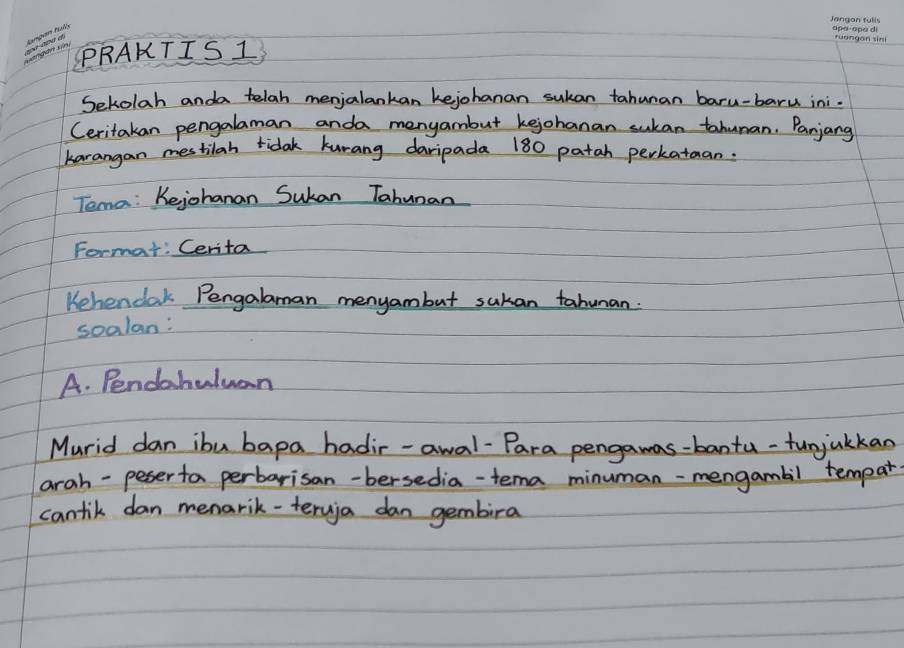 Jangan tulis
apa-apa di
ruangan sini
Jangan tulis
apa-apa di
ruangan sini
PRAKTIS 1
Sekolah anda telah menjalankan kejohanan sukan tahunan baru-baru ini.
Ceritakan pengalaman anda menyambut kejohanan sukan tahunan. Panjang
karangan mestilah tidak kurang daripada 180 patah perkataan.
Tema: Kejohanan Sukan Tahunan
Format: Cerita
Kehendak Pengalaman menyambut sukan tahunan.
soalan:
A. Pendahuluan
Murid dan ibu bapa hadir - awal - Para pengawas - bantu - tunjukkan
arah - peserta perbarisan - bersedia - tema minuman - mengambil tempat -
cantik dan menarik - teruja dan gembira